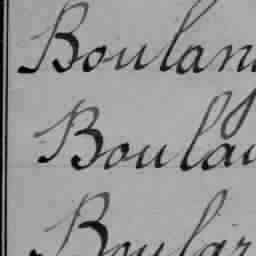 Boulan
Boula
Boular